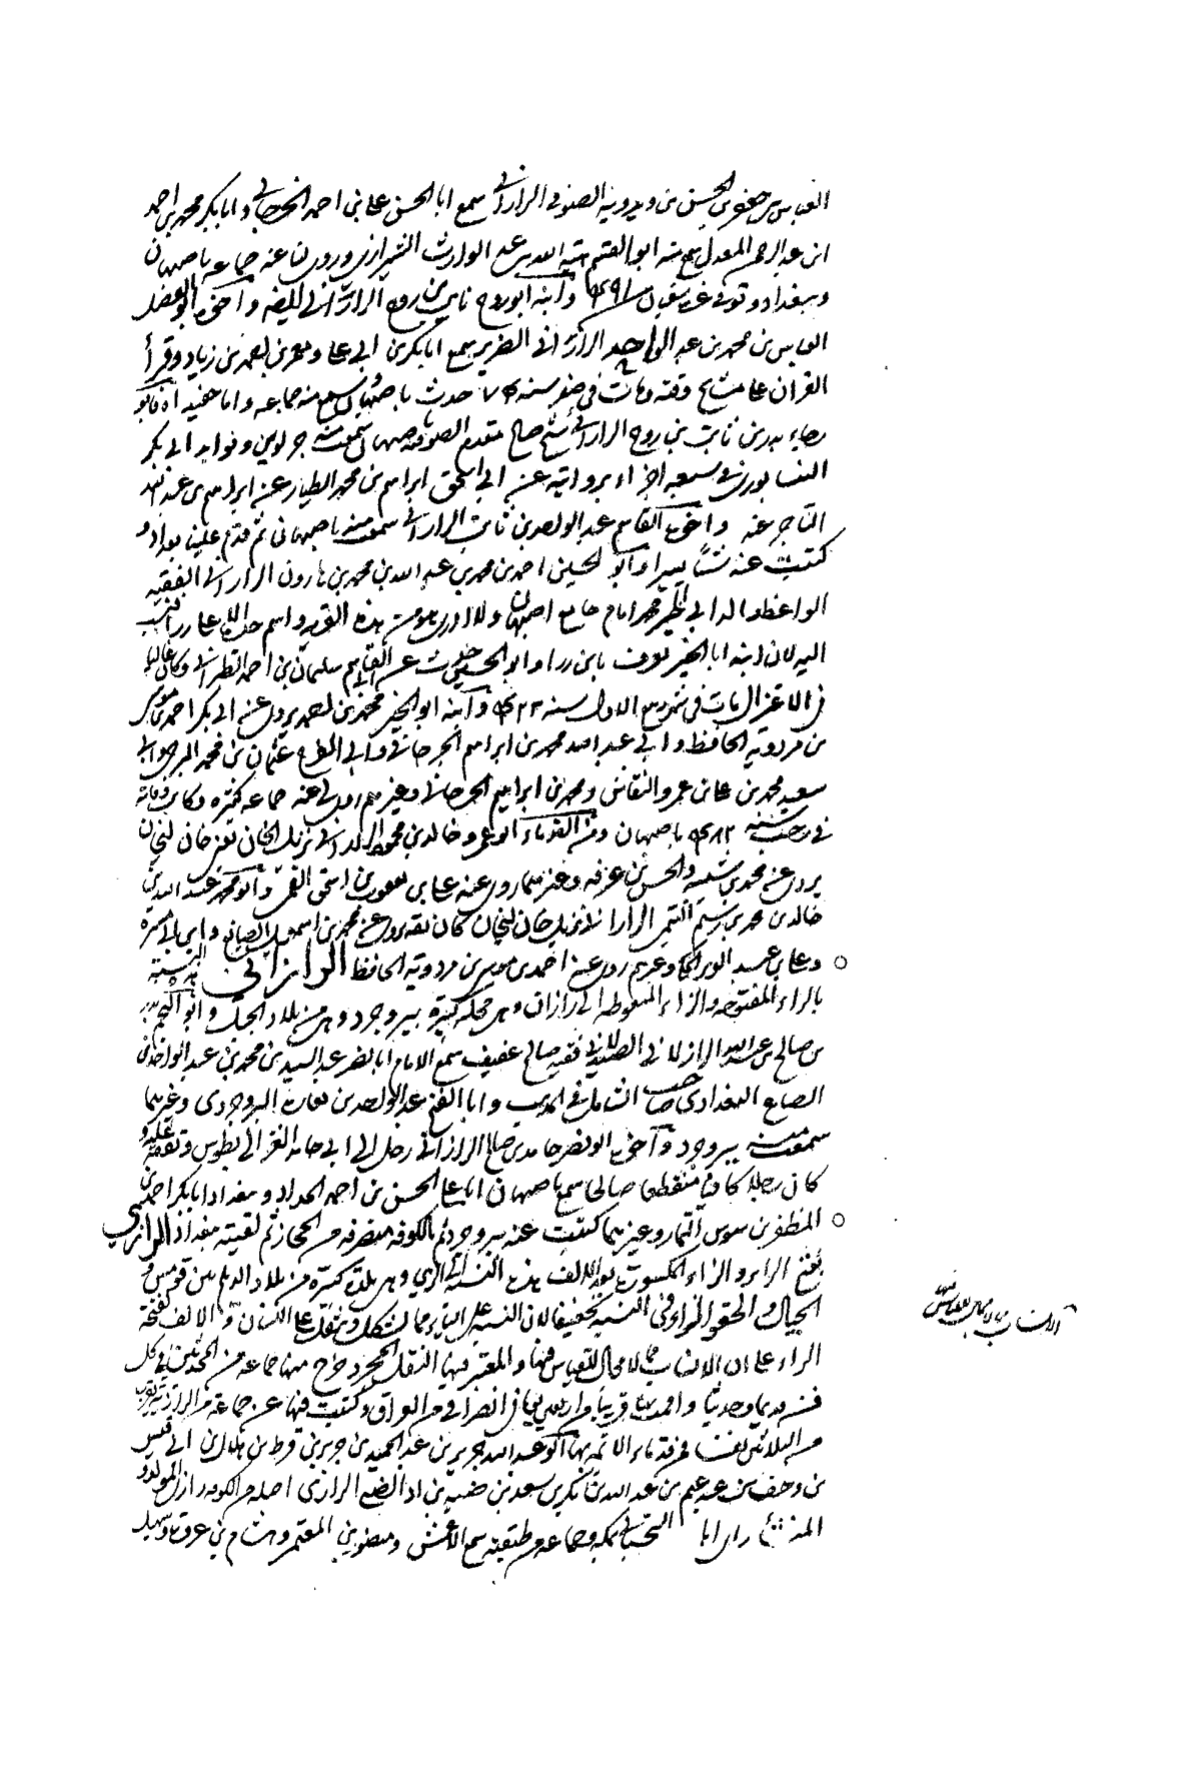 العباس بن جعفر بن الحسن بن ويدويه الصوفي الراراني سمع ابا الحسن علي بن احمد الجرجاني وابا بكر محمد بن احمد
ابن عبد الرحمن المعدل سمع منه ابو القسم هبة الله بن عبد الوارث الشيرازي وروى لنا عنه جماعة باصبهان
وببغداد وتوفي في شعبان سنة ٤٩١ وابنه ابو روح ثابت بن روح الراراني واخوه ابو الفضل
العباس بن محمد بن عبد الواحد الراراني الضرير سمع ابا بكر بن ابي علي ومعمر بن احمد بن زياد وقرأ
القران على مشايخ وقته ومات في صفر سنة حدث باصبهان سمع منه جماعة واما حفيداه فابو
رجاء بدر بن ثابت بن روح الراراني شيخ صالح مقدم الصوفية باصبهان سمعت منه جزء لوين وفوائد ابي بكر
النيسابوري في سبعة اجزاء بروايته عن ابي اسحق ابراهيم بن محمد الطيار عن ابراهيم بن عبد الله
التاجر عنه واخوه ابو القاسم عبد الواحد بن ثابت الراراني سمعت منه باصبهان ثم قدم علينا بغداد و
كتبت عنه شيئا يسيرا وابو الحسين احمد بن محمد بن عبد الله بن محمد بن هارون الراراني الفقيه
الواعظ والد ابي الخير محمد امام جامع اصبهان ولا ادري هو من هذه القرية او اسم جده الاعلى ررا نسب
اليه لان ابنه ابا الخير يعرف بابن ررا وابو الحسين حدث عن ابي القاسم سليمان بن احمد الطبراني وكان غاليا
في الاعتزال مات في شهر ربيع الاول سنة ٤٢٣ وابنه ابو الخير محمد بن احمد يروي عن ابي بكر احمد بن موسى
بن مردويه الحافظ وابي عبد الله محمد بن ابراهيم الجرجاني وابي الفرج عثمان بن محمد البرجي وابي
سعيد محمد بن علي بن عمرو النقاش ومحمد بن ابراهيم الجرجاني وغيرهم روى لي عنه جماعة كثيرة وكانت وفاته
في رجب سنة ٤٨٢ باصبهان ومن القدماء ابو عمرو خالد بن محمد الراراني نزيل الخان يعني خان لنجان
يروي عن محمد بن شيبة والحسن بن عرفة وغيرهما روى عنه علي بن يعقوب بن اسحق القمي وابو محمد عبد الله بن
خالد بن محمد بن رستم التيمي الراراني نزيل خان لنجان كان ثقة يروي عن محمد بن اسمعيل الصايغ وابن ابي مسرة
وعلي بن عبد العزيز المكي وغيرهم روى عنه احمد بن موسى بن مردويه الحافظ الرازاني هذه النسبة
بالراء المفتوحة والزاء المنقوطة الى رازان وهي محلة كبيرة ببروجرد وهي من بلاد الجبل وابو النجم بدر
بن صالح بن عبد الله الرازاني الصيدلاني فقيه صالح عفيف سمع الامام ابا نصر عبد السيد بن محمد بن عبد الواحد بن
الصباغ البغدادي صاحب الشامل في المذهب وابا الفتح عبد الواحد بن نغارة البروجردي وغيرهما
سمعت منه ببروجرد واخوه ابو نصر حامد بن صالح الرازاني رحل الى ابي حامد الغزالي بطوس وتفقه عليه و
كان رجلا كافيا منقطعا صالحا سمع باصبهان ابا علي الحسن بن احمد الحداد وببغداد ابا بكر احمد بن
المظفر بن سوسن التمار وغيرهما كتبت عنه ببروجرد ثم بالكوفة منصرفه من الحجاز ثم لقيته ببغداد الرازي
بفتح الراء والزاء المكسورة بعد الالف هذه النسبة الى الري وهي بلدة كبيرة من بلاد الديلم بين قومس و
الجبال والحقوا الزاء في النسبة تخفيفا لان النسبة على الياء مما يشكل ويثقل على اللسان والالف لفتحة
الراء على ان الانساب مما لا مجال للقياس فيها والمعتبر فيها النقل المجرد خرج منها جماعة من المحدثين في كل
فن قديما وحديثا واقمت بها قريبا من اربعين يوما في انصرافي من العراق وكتبت فيها عن جماعة من الرازية بقرب
من الثلاثين نفسا فمن قدماء الائمة بها ابو عبد الله جرير بن عبد الحميد بن جرير بن قرط بن هلال بن ابي قيس
بن وحف بن عبد غنم بن عبد الله بن بكر بن سعد بن ضبة بن اد الضبي الرازي اصله من الكوفة رازي المولد و
المنشا راى ايوب السختياني بمكة وجماعة من طبقته سمع الاعمش ومنصور بن المعتمر وهشام بن عروة وسهيل
الانساب مما لا مجال للقياس فيها